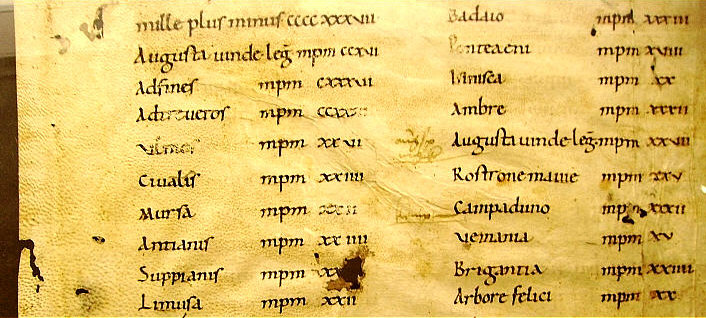 mille plus minus cccc xxxvii
Augusta uinde·leg̅ mpm ccxvi
Adfines mpm cxxxvii
mpm
mpm xxvi
Ciualis mpm xxiiii
Mursa mpm
Antianis mpm xxiiii
Suppianis mpm
Limusa mpm xxii
Badaio mpm xxxiii
mpm xviii
mpm xx
Ambre mpm xxxii
Augusta uinde·leg̅ mpm xxviii
Rostronemauie mpm xxv
Campaduno mpm xxxii
uemania mpm xv
Brigantia mpm xxiiii
Arbore felici mpm xx